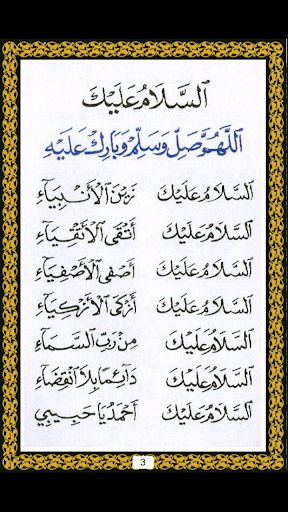 اَلسَّلَامُ عَلَيْكَ
اَللّٰهُمَّ صَلِّ وَسَلِّمْ وَبَارِكْ عَلَيْهِ
اَلسَّلَامُ عَلَيْكَ زَيْنَ الْأَنْبِيَآءِ
اَلسَّلَامُ عَلَيْكَ أَتْقَى الْأَتْقِيَآءِ
اَلسَّلَامُ عَلَيْكَ أَصْفَى الْأَصْفِيَآءِ
اَلسَّلَامُ عَلَيْكَ أَزْكَى الْأَزْكِيَآءِ
اَلسَّلَامُ عَلَيْكَ مِنْ رَبِّ السَّمَآءِ
اَلسَّلَامُ عَلَيْكَ دَآئِمًا بِلَا انْقِضَآءِ
اَلسَّلَامُ عَلَيْكَ أَحْمَدُ يَا حَبِيْبِي
3